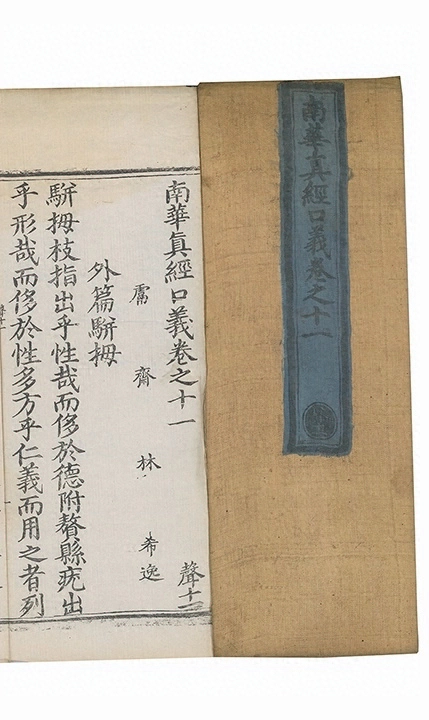 南華真經口義卷之十一
南華真經口義卷之十一
聲十一
鬳齋林希逸
外篇駢拇
駢拇枝指出乎性哉而侈於德附贅縣疣出
乎形哉而侈於性多方乎仁義而用之者列